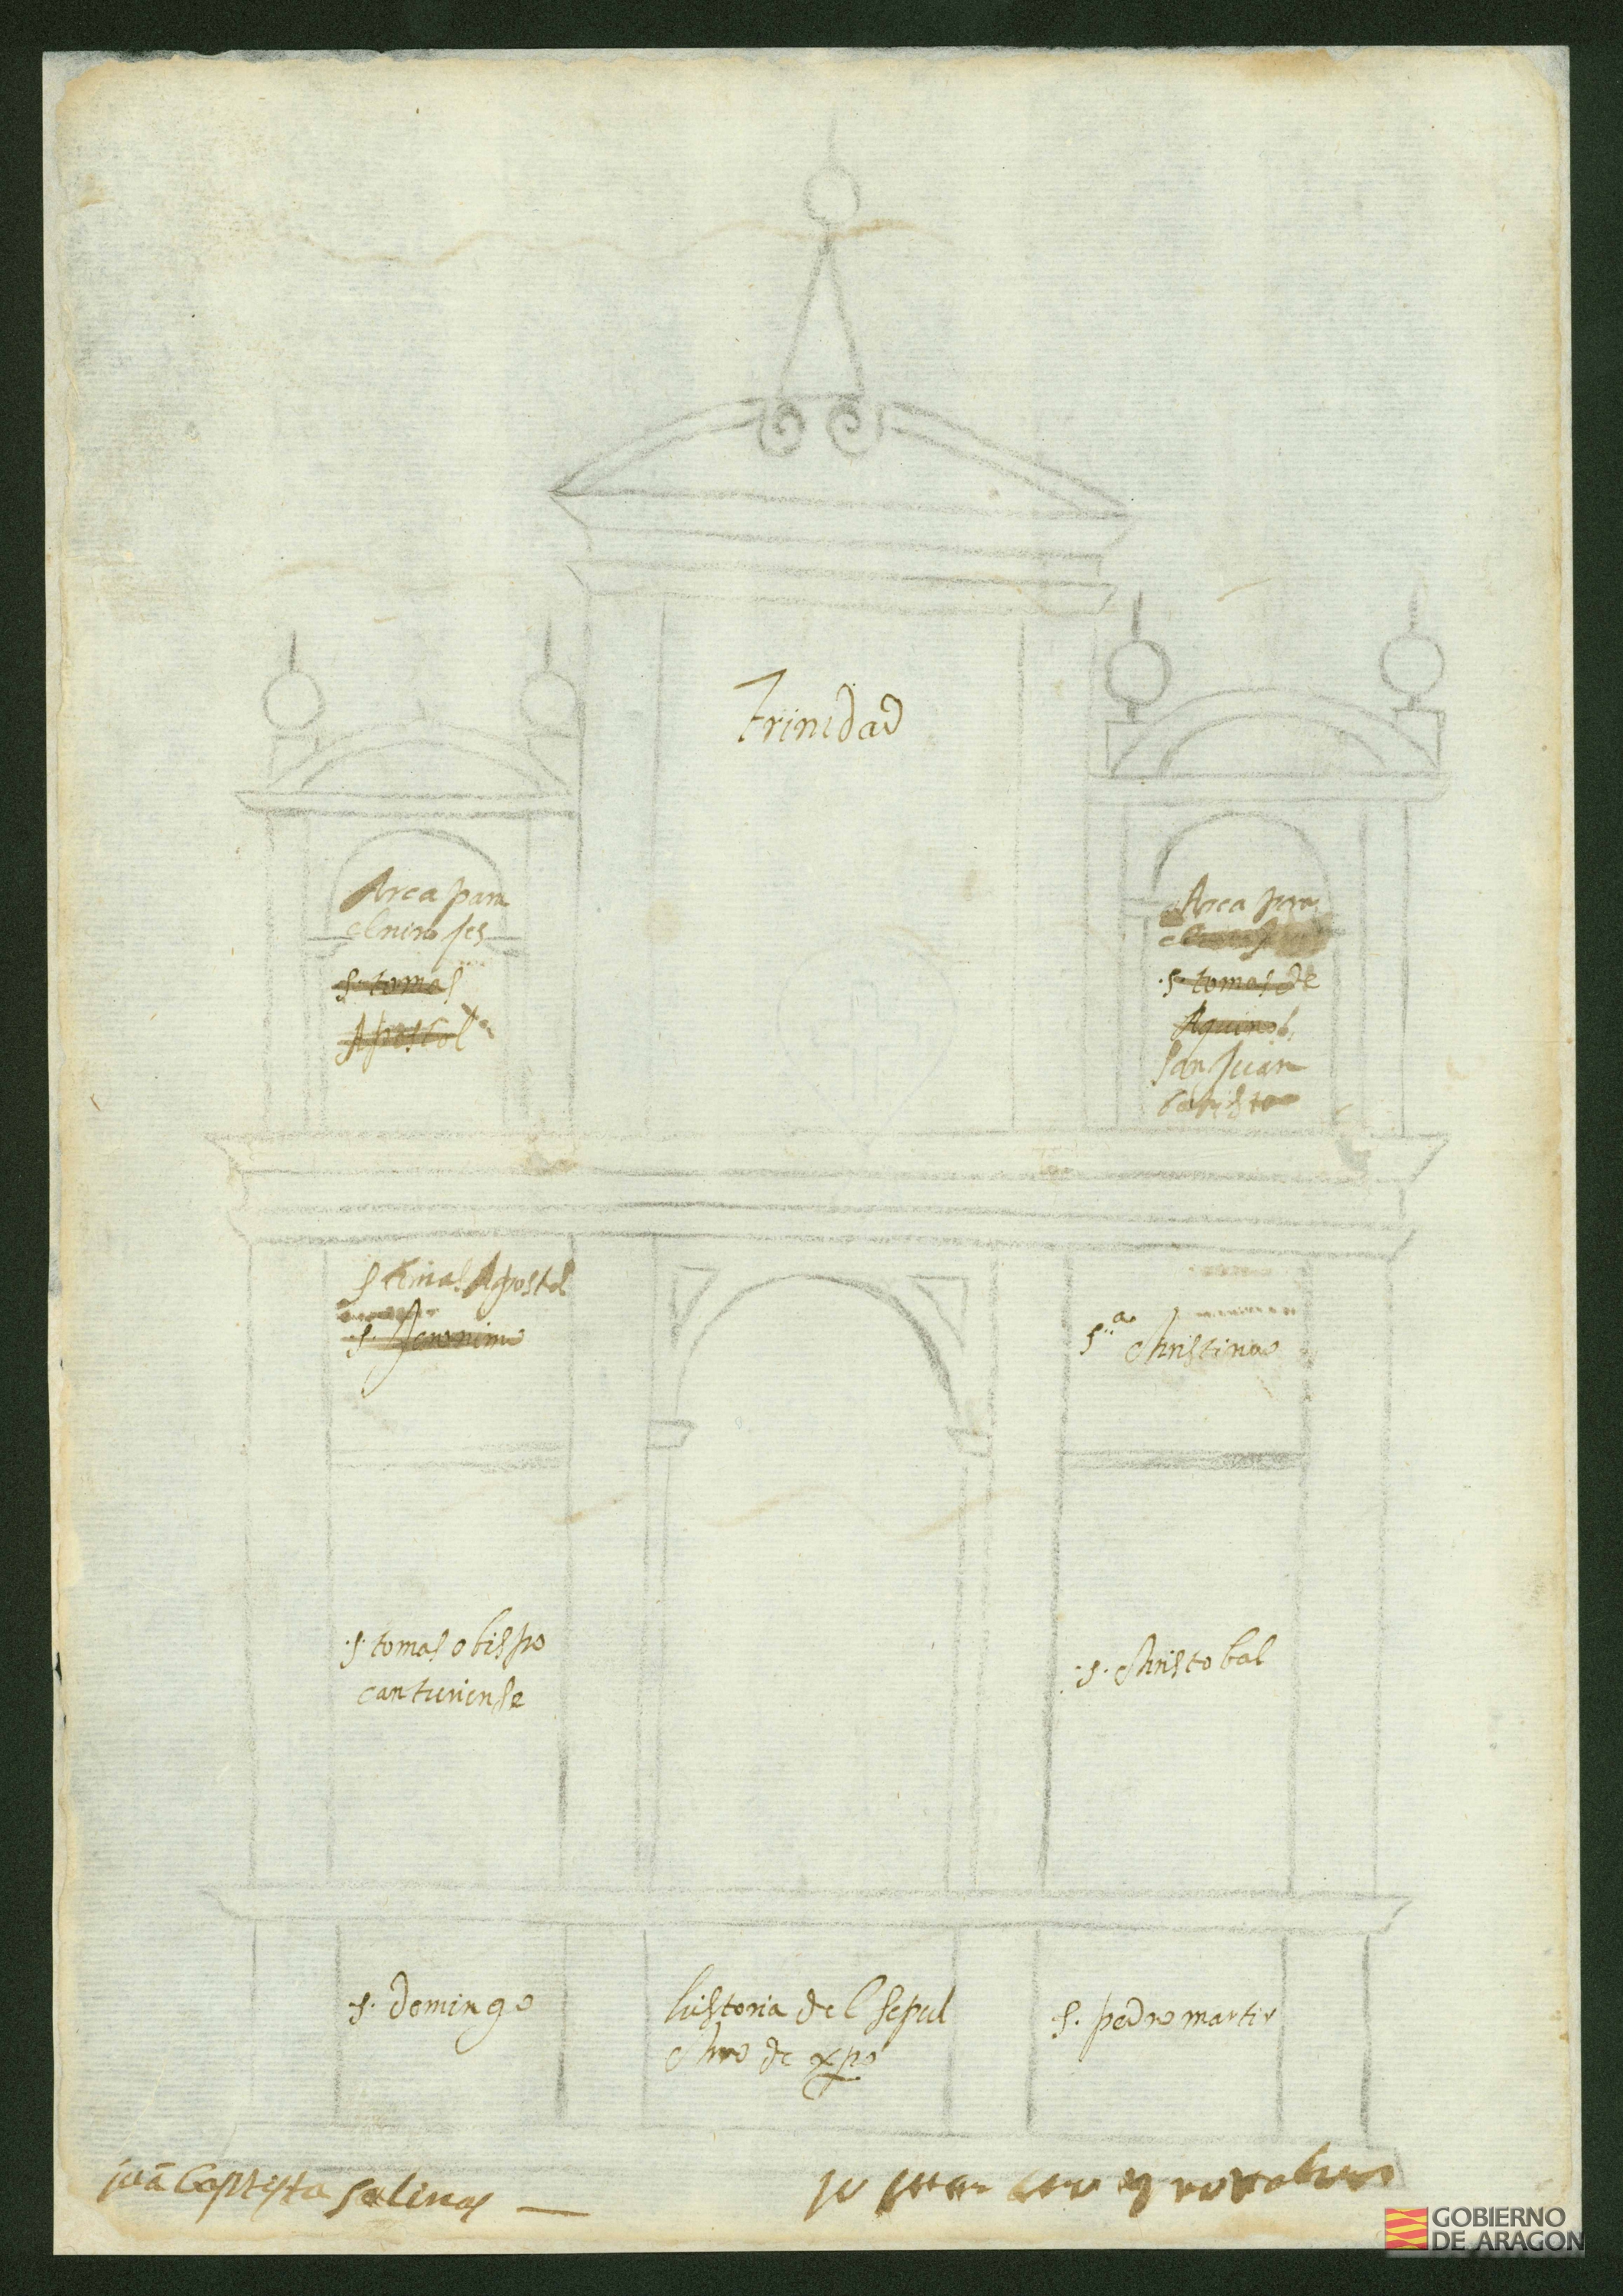 Trinidad
Arca para
el nino Jes
s. tomas
Apostol
Arca para
s. tomas de
Aquino
san Juan
batista
s tomas Apostol
s. Jeronimo
sᵃ Christina
s. tomas obispo
canturiense
s. Christobal
s. domingo
historia del sepul
chro de xpo
s. pedro martir
juā baptista salinas
GOBIERNO
DE ARAGON